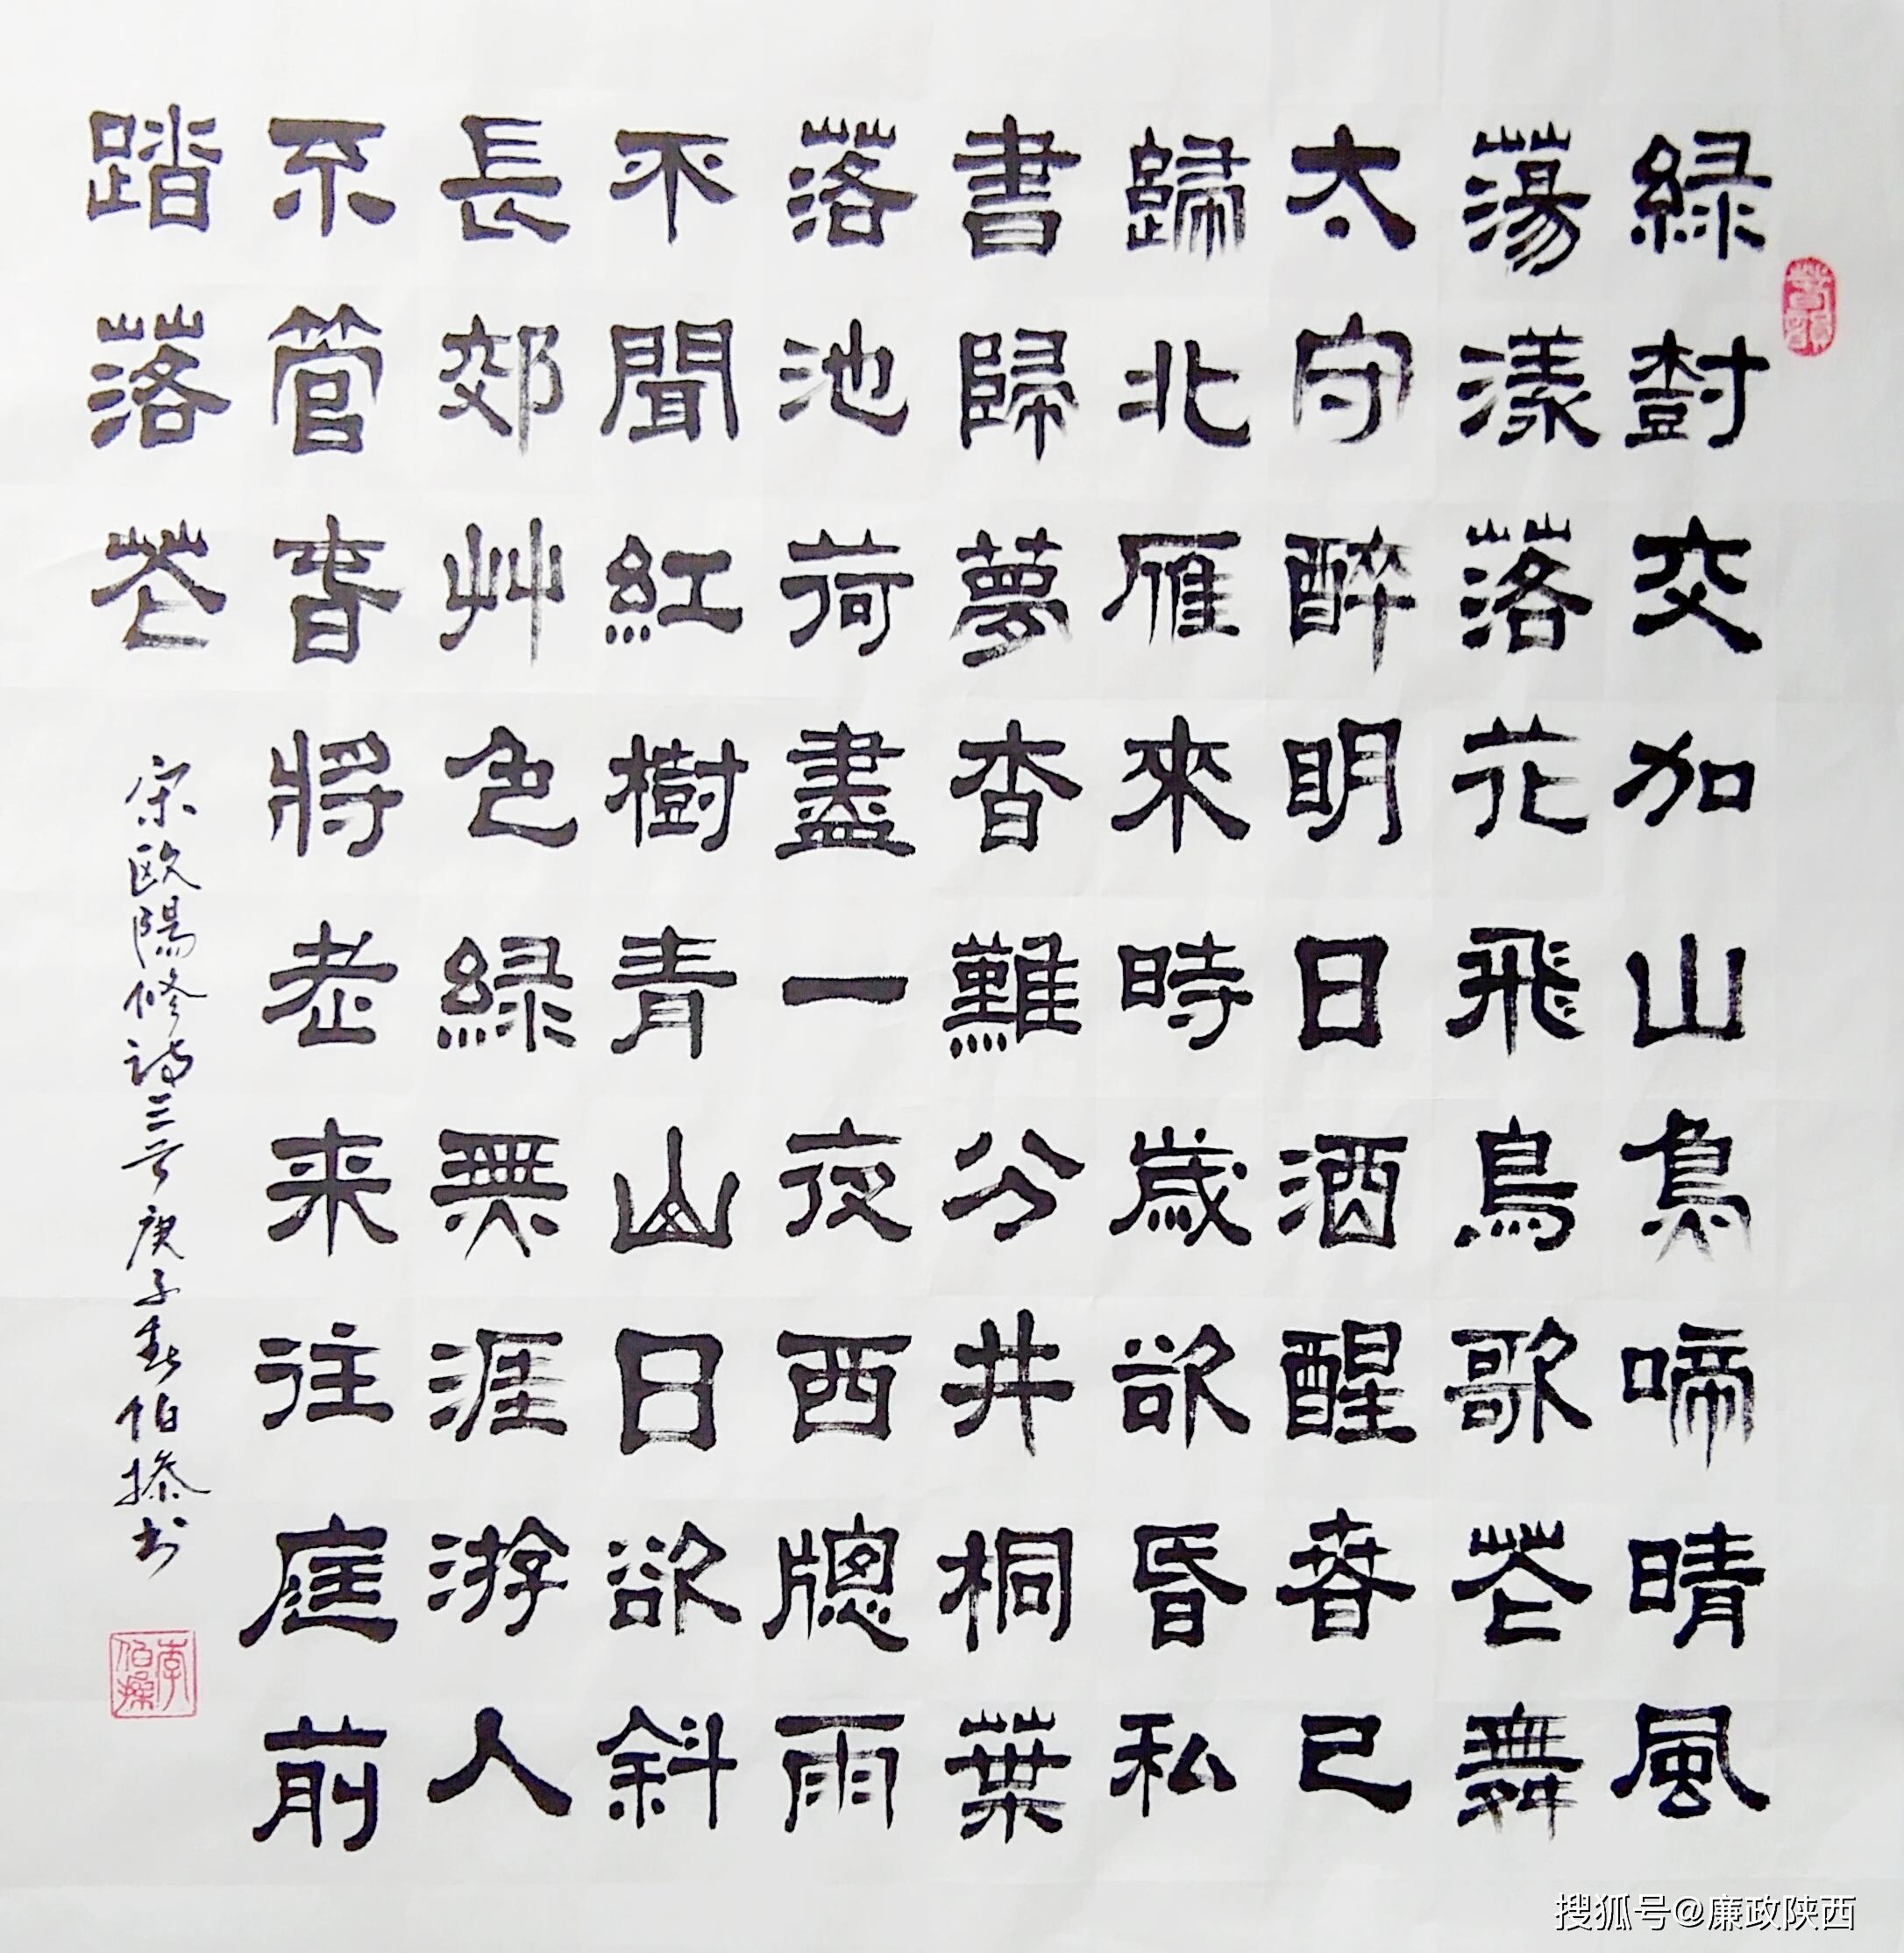 綠樹交加山鳥啼晴風
蕩漾落花飛鳥歌花舞
太守醉明日酒醒春已
歸北雁來時歲欲昏私
書歸夢杳難分井桐葉
落池荷盡一夜西窗雨
不聞紅樹青山日欲斜
長郊草色綠無涯游人
不管春將老来往庭前
踏落花
宋歐陽修詩三首庚子春伯操书
李伯操
搜狐号@廉政陕西